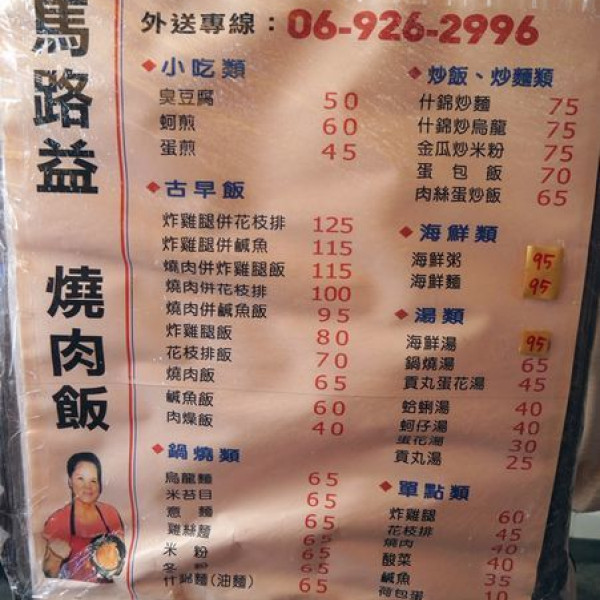 馬路益 燒肉飯
外送專線：06-926-2996
◆小吃類
臭豆腐 50
蚵煎 60
蛋煎 45
◆古早飯
炸雞腿併花枝排 125
炸雞腿併鹹魚 115
燒肉併炸雞腿飯 115
燒肉併花枝排 100
燒肉併鹹魚飯 95
炸雞腿飯 80
花枝排飯 70
燒肉飯 65
鹹魚飯 60
肉燥飯 40
◆鍋燒類
烏龍麵 65
米苔目 65
意麵 65
雞絲麵 65
米粉 65
冬粉 65
什錦麵(油麵) 65
◆炒飯、炒麵類
什錦炒麵 75
什錦炒烏龍 75
金瓜炒米粉 75
蛋包飯 70
肉絲蛋炒飯 65
◆海鮮類
海鮮粥 95
海鮮麵 95
◆湯類
海鮮湯 95
鍋燒湯 65
貢丸蛋花湯 45
蛤蜊湯 40
蚵仔湯 40
蛋花湯 30
貢丸湯 25
◆單點類
炸雞腿 60
花枝排 45
燒肉 40
酸菜 40
鹹魚 35
荷包蛋 10